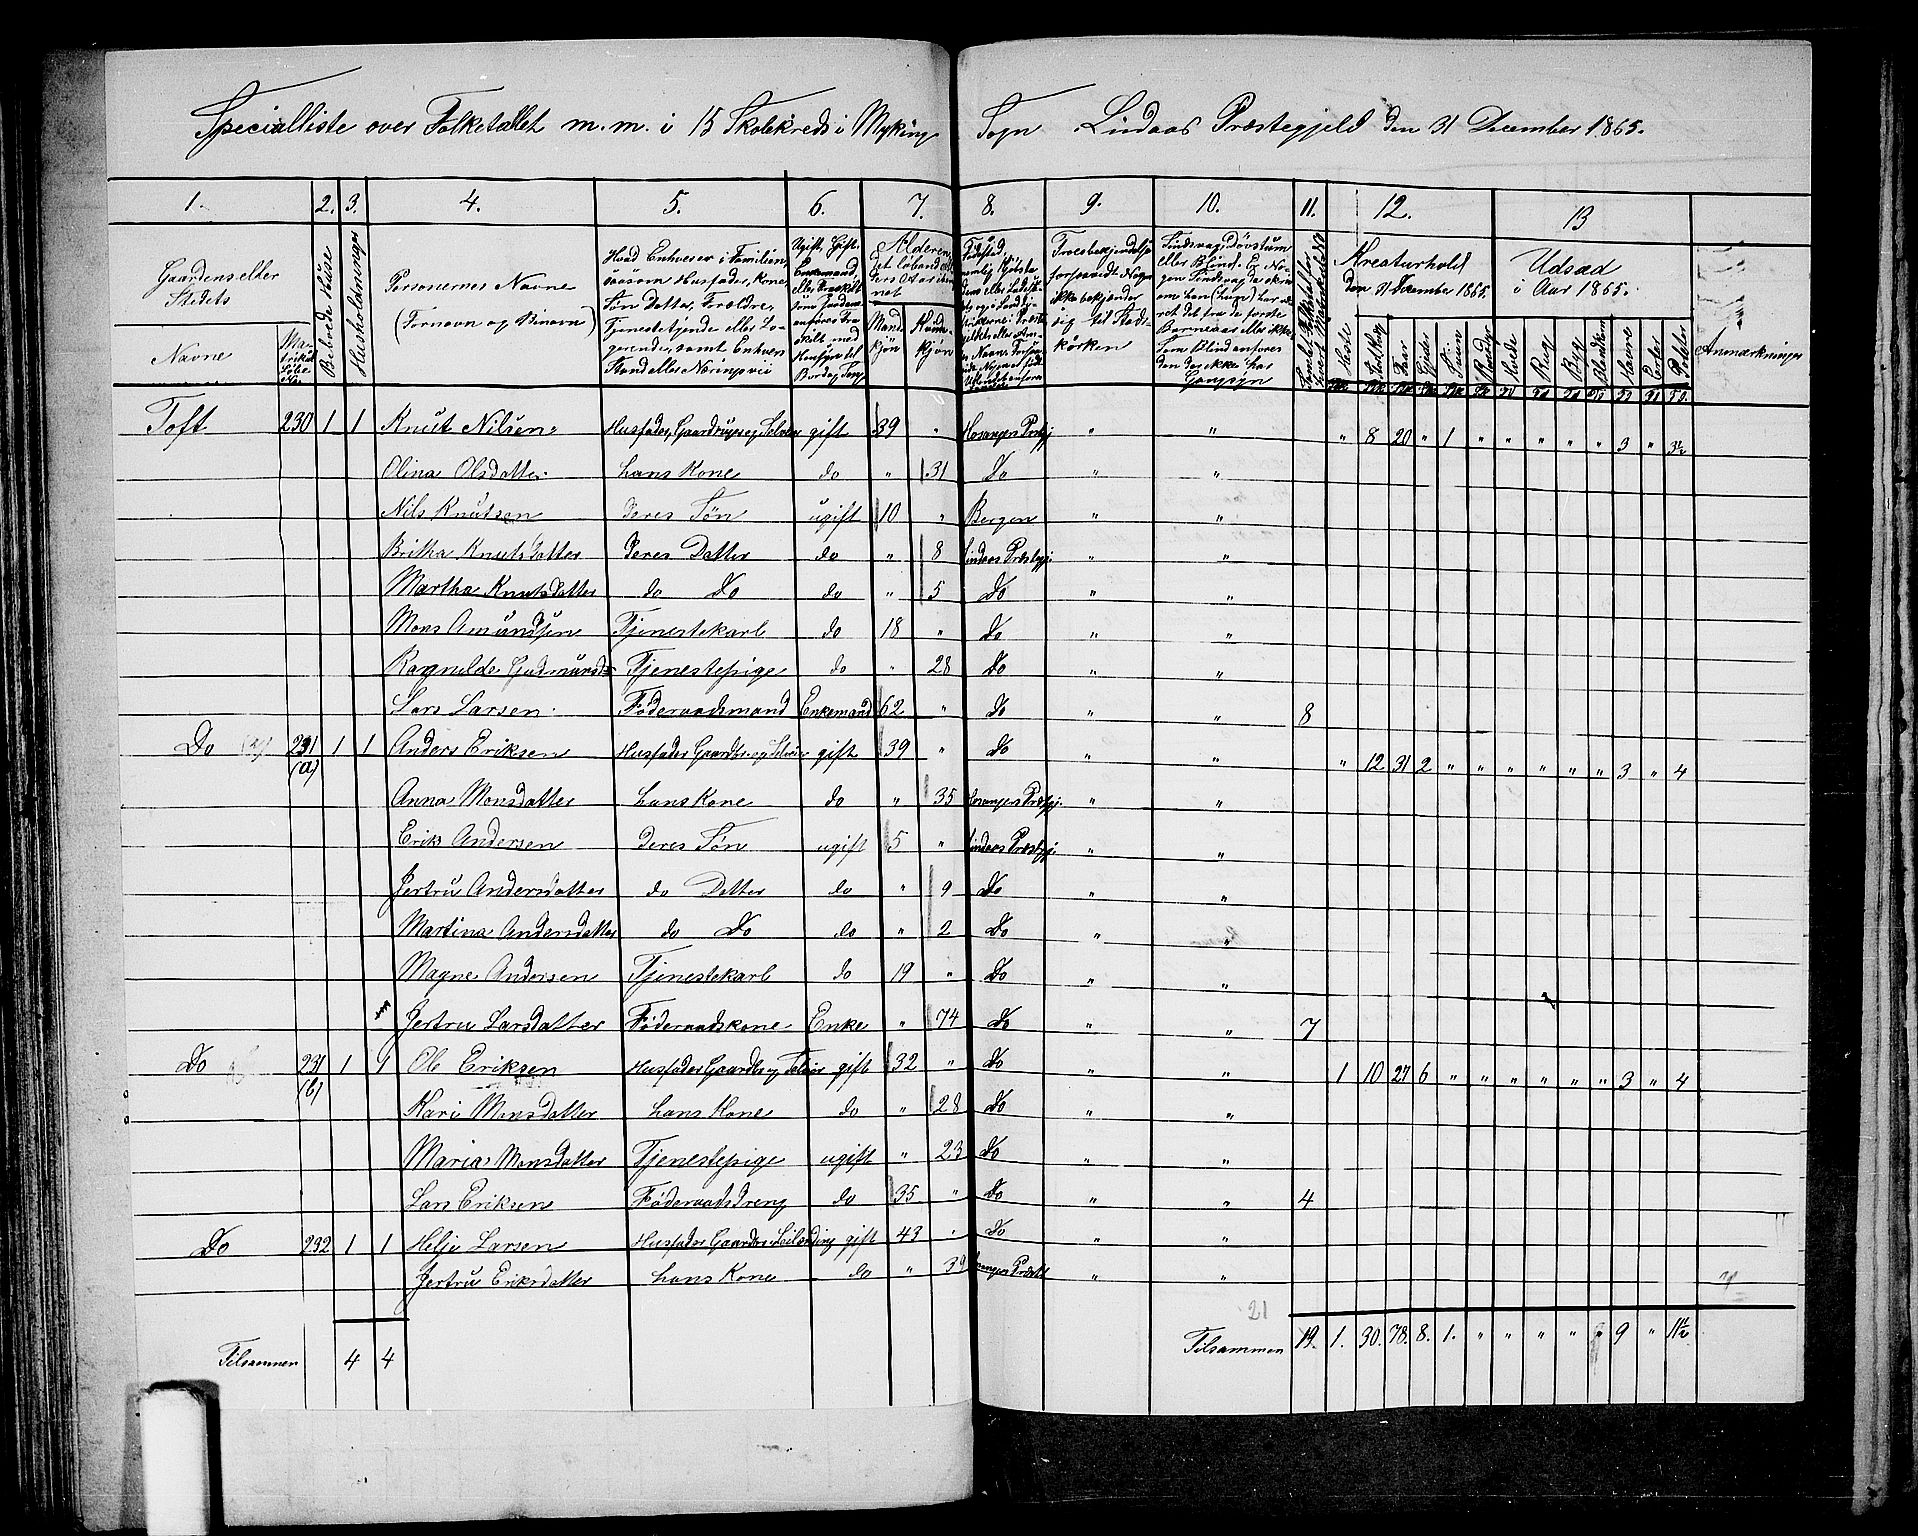 Specialliste over Folketallet m.m. i 15 Skolekreds i Myking Sogn Lindaas Præstegjeld den 31 December 1865.
1. 2. 3. 4. 5. 6. 7. 8. 9. 10. 11. 12. 13
Gaardens eller Stedets
Navne
Matrikul Løbe No.
Beboede Huse
Husholdninger
Personernes Navne
(Fornavn og Binavn)
Hvad Enhver er i Familien,
saasom Husfader, Kone,
Søn Datter, Forældre,
Tjenestetjende eller Lo-
gerende, samt Enhvers
Stand eller Næringsvei
Alderen,
det løbende Al-
ders Aar iberег-
net
Mand-
kjøn
Kvinde-
kjøn
Troesbekjendelse
forsaavidt Nogen
ikke bekjender
sig til Stads-
kirken
Sindsvag, Døvstum
eller Blind. Er No-
gen Sindsvag da skrives
om han (hun) har væ-
ret det fra de første
Barneaar eller ikke.
Som Blind anføres
den der ikke har
Gangsyn
Kreaturhold
den 31 December 1865.
Udsæd
i Aar 1865.
Heste Storfæ Faar Gjeder Sviin Rensdyr Hvede Rug Byg Blandkorn Havre Erter Poteter
Anmærkninger
Toft 230 1 1 Knut Nilsen Husfader, Gaardbruger og Selveier gift 39 " Hosanger Præstgj " " " 8 20 " 1 " " " " " 3 " 3½
Olina Olsdatter hans Kone do " 31 Do " "
Nils Knutsen deres Søn ugift 10 " Bergen " "
Britha Knutsdatter deres Datter do " 8 Lindaas Præstegj. " "
Martha Knutsdatter do Do do " 5 Do " "
Mons Amundsen Tjenestekarl do 18 " Do " "
Ragnilde Gudmundsd Tjenestepige do " 28 Do " "
Lars Larsen Føderaadsmand Enkemand 62 " Do " " 8
Do 231 (a) 1 1 Anders Eriksen Husfader Gaardbr. og Selveier gift 39 " Do " " " 12 31 2 " " " " " " 3 " 4
Anna Monsdatter hans Kone do " 35 Hosangers Præstgj. " "
Erik Andersen deres Søn ugift 5 " Lindaas Præstegj. " "
Jertru Andersdatter do Datter do " 9 Do " "
Martina Andersdatter do Do do " 2 Do " "
Magne Andersen Tjenestekarl do 19 " Do " "
Jertru Larsdatter Føderaadskone Enke " 74 Do " " 7
Do 231 (b) 1 1 Ole Eriksen Husfader Gaardbr og Selveier gift 32 " Do " " 1 10 27 6 " " " " " " 3 " 4
Kari Monsdatter hans Kone do " 28 Do " "
Maria Monsdatter Tjenestepige ugift " 23 Do " "
Lars Eriksen Føderaadsdreng do 35 " Do " " 4
Do 232 1 1 Helje Larsen Husfader Gaardbr Leilænding gift 43 " Do " "
Jertru Eriksdatter hans Kone do " 39 " "
21
Tilsammen 4 4 Tilsammen 19. 1. 30. 78. 8. 1. " " " " " 9 " 11½